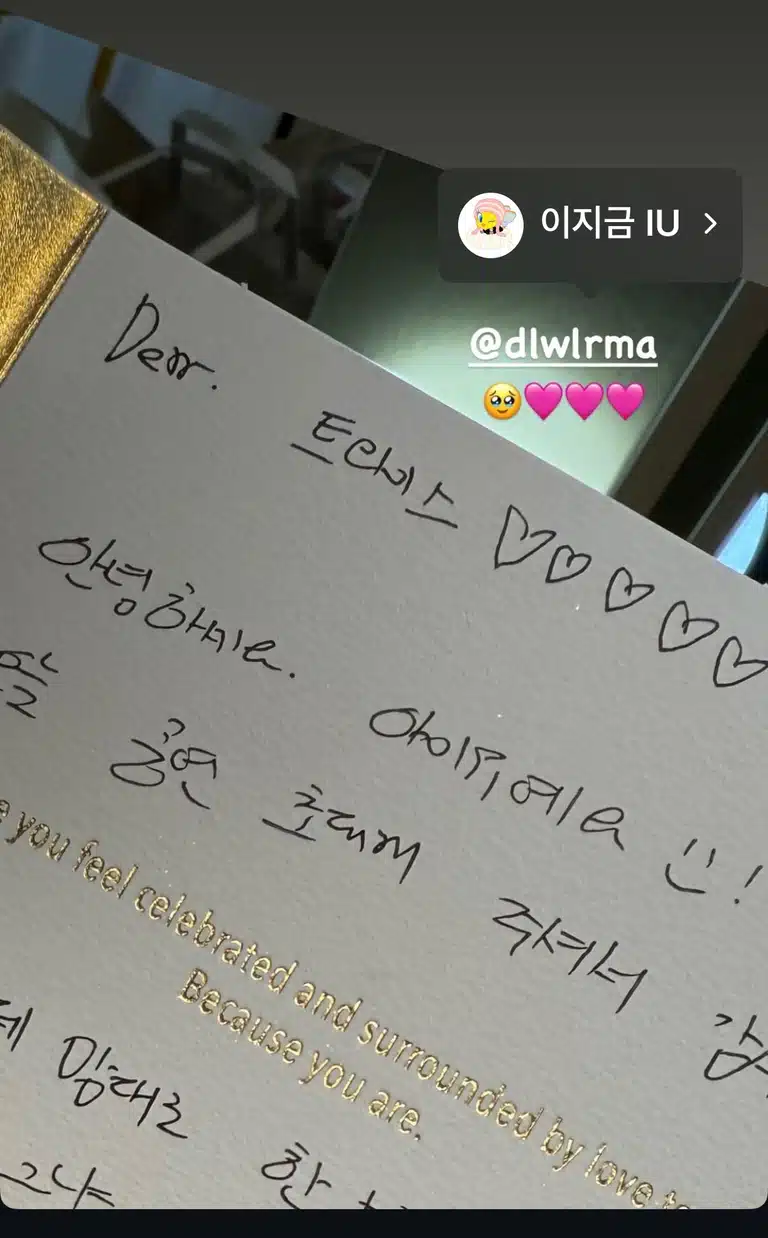 이지금 IU
@dlwlrma
🥹🩷🩷🩷
Dear. 트래비스 ♡♡♡♡♡
안녕하세요. 아이유예요 !
공연 초대해 주셔서 감
you feel celebrated and surrounded by love
Because you are.
맘대로 한